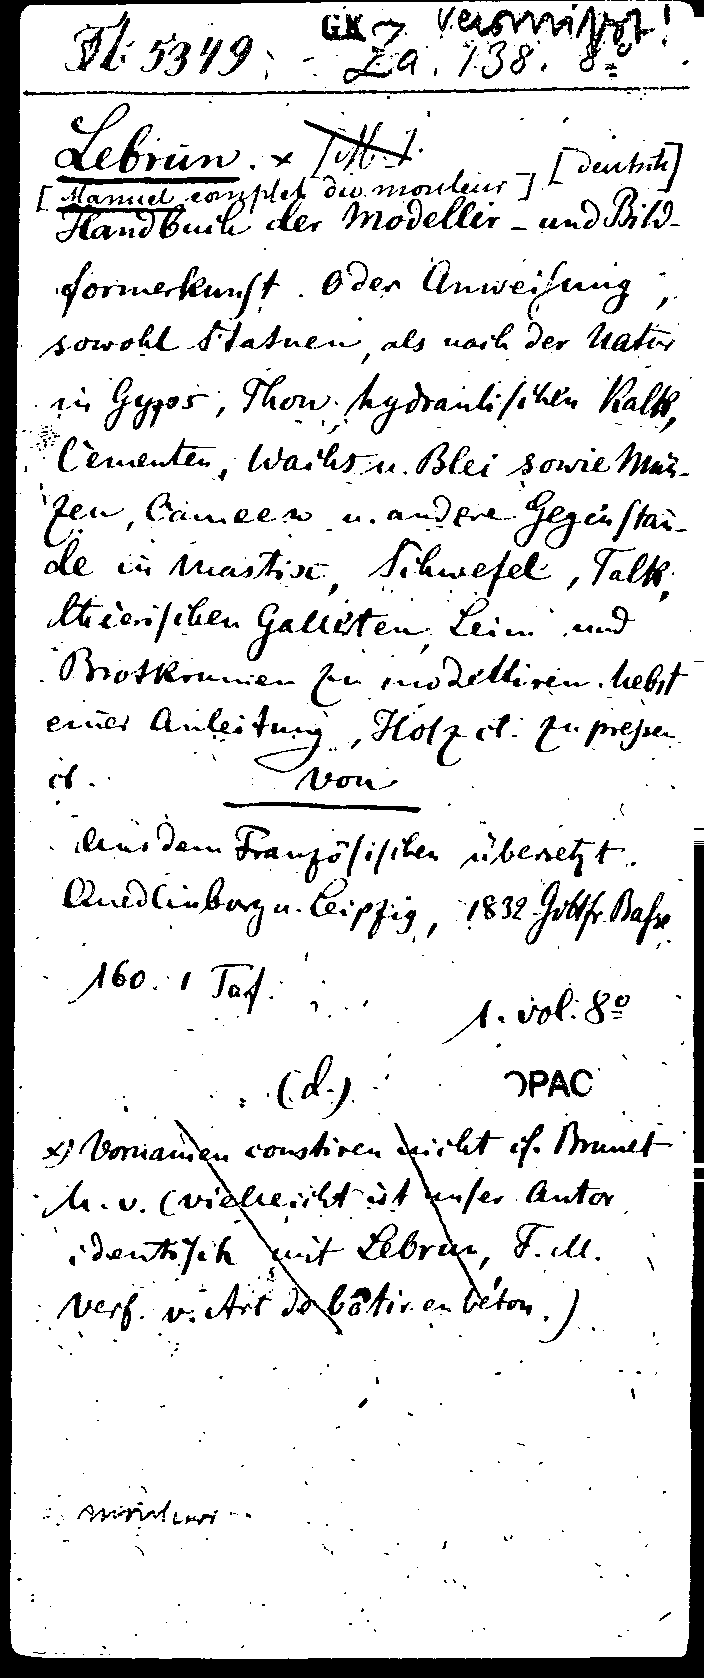 GK vermißt!
5349. Za. 138. 8º
Lebrun. x [M.]. [deutsch]
[Manuel complet du mouleur]
Handbuch der Modellir- und Bild-
formerkunst. Oder Anweisung,
sowohl Statuen, als nach der Natur
in Gyps, Thon, hydraulischen Kalk,
Cementen, Wachs u. Blei sowie Mün-
zen, Cameen u. andere Gegenstän-
de in Mastix, Schwefel, Talk,
thierischen Gallerten, Leim und
Brotkrumen zu modelliren. Nebst
einer Anleitung, Holz ct. zu pressen
ct. von
Aus dem Französischen übersetzt.
Quedlinburg u. Leipzig, 1832 Gottfr. Basse
160. 1 Taf.
1. vol. 8º
(d.) OPAC
x) Vornamen constiren nicht cf. Brunet
h. v. (vielleicht ist unser Autor
identisch mit Lebrun, F. M.
Verf. v. Art de bâtir en béton.)